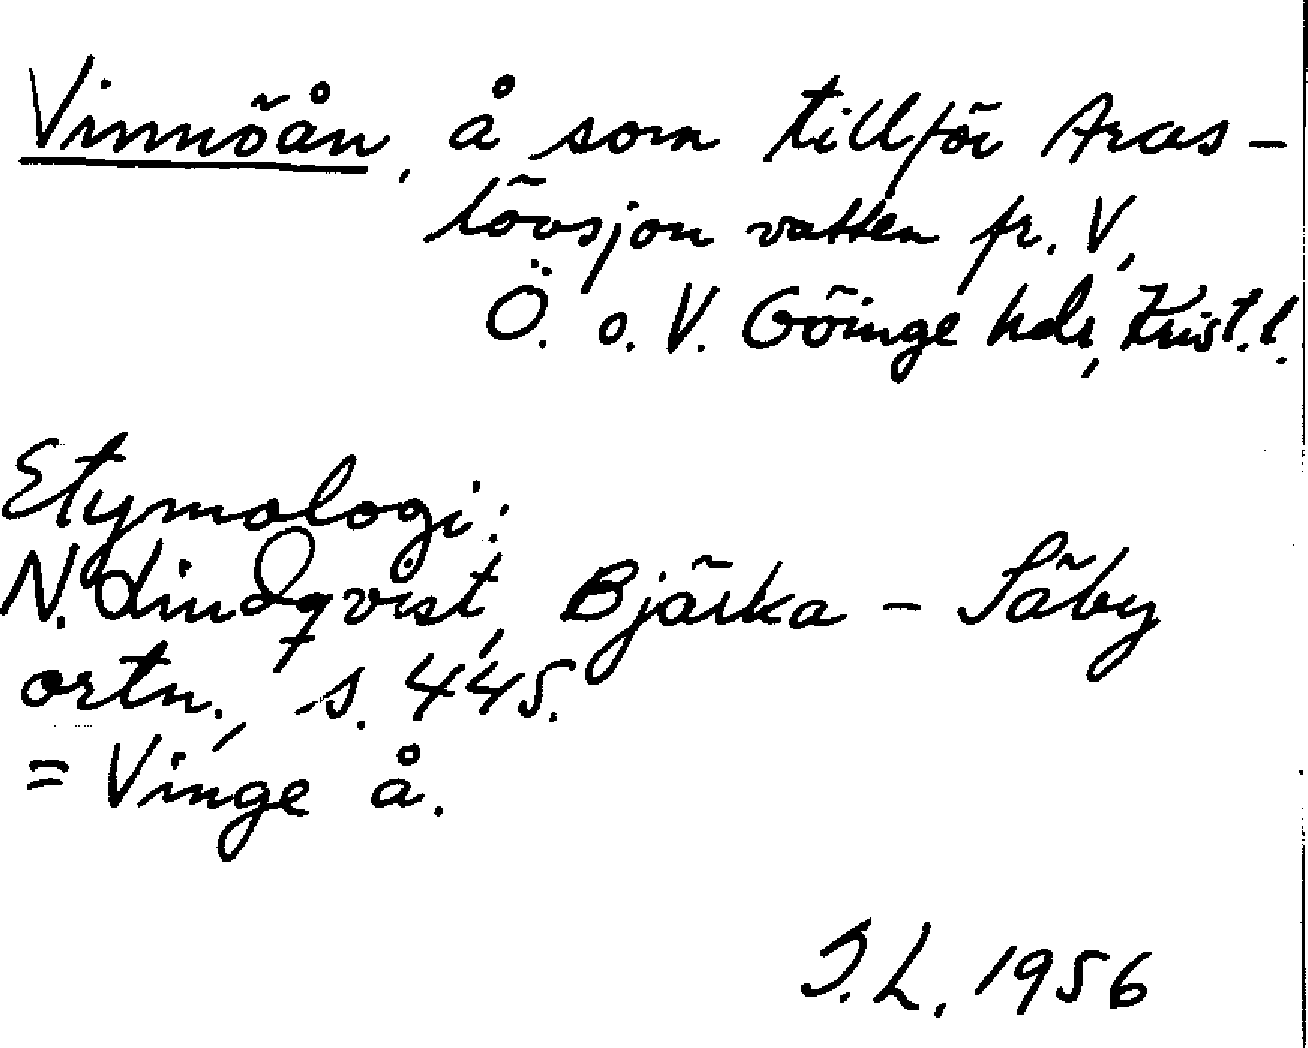 Vinnöån, å som tillför Aras-
lövsjön vatten fr. V,
Ö. o. V. Göinge hdr, Krist. l.
Etymologi:
N. Lindqvist, Bjärka-Säby
ortn., s. 445.
= Vinge å.
I.L. 1956